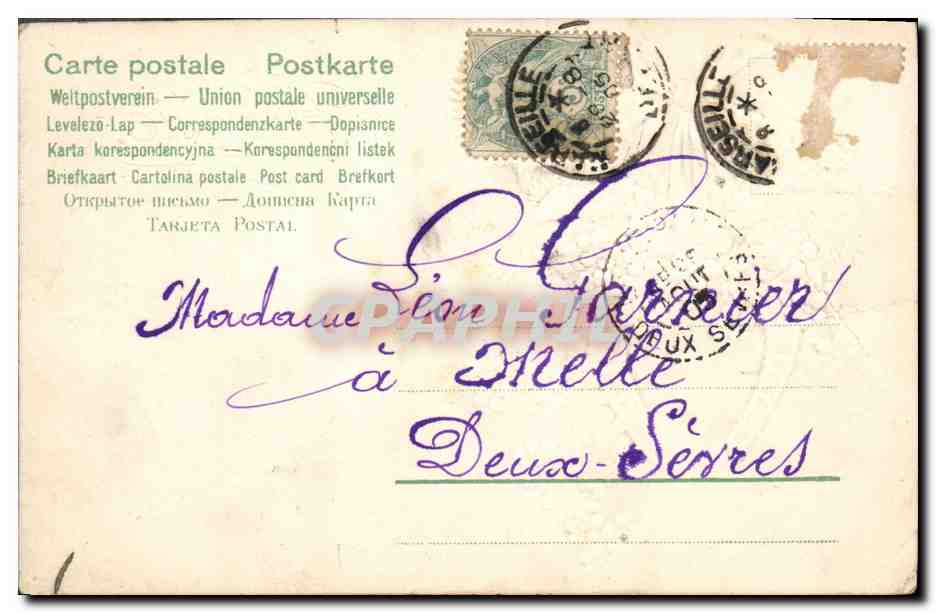 Carte postale Postkarte
Weltpostverein — Union postale universelle
Levelező-Lap — Correspondenzkarte — Dopisnice
Karta korespondencyjna — Korespondenčni listek
Briefkaart Cartolina postale Post card Brefkort
Открытое письмо — Дописна Карта
TARJETA POSTAL
MARSEILLE
MARSEILLE
Madame Léon Garnier
CPAPHIL
à Melle
DEUX SEVRES
Deux-Sèvres